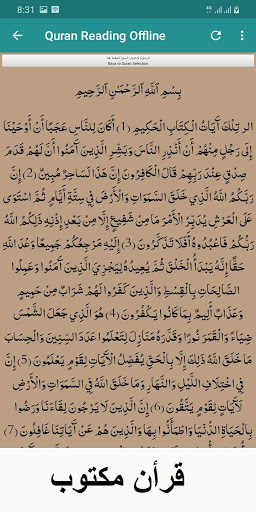 8:31
Quran Reading Offline
Back to Surah Selection
بِسْمِ اللَّهِ الرَّحْمَٰنِ الرَّحِيمِ
الر تِلْكَ آيَاتُ الْكِتَابِ الْحَكِيمِ (1) أَكَانَ لِلنَّاسِ عَجَبًا أَنْ أَوْحَيْنَا
إِلَى رَجُلٍ مِنْهُمْ أَنْ أَنْذِرِ النَّاسَ وَبَشِّرِ الَّذِينَ آمَنُوا أَنَّ لَهُمْ قَدَمَ
صِدْقٍ عِنْدَ رَبِّهِمْ قَالَ الْكَافِرُونَ إِنَّ هَذَا لَسَاحِرٌ مُبِينٌ (2) إِنَّ
رَبَّكُمُ اللَّهُ الَّذِي خَلَقَ السَّمَوَاتِ وَالْأَرْضَ فِي سِتَّةِ أَيَّامٍ ثُمَّ اسْتَوَى
عَلَى الْعَرْشِ يُدَبِّرُ الْأَمْرَ مَا مِنْ شَفِيعٍ إِلَّا مِنْ بَعْدِ إِذْنِهِ ذَلِكُمُ اللَّهُ
رَبُّكُمْ فَاعْبُدُوهُ أَفَلَا تَذَكَّرُونَ (3) إِلَيْهِ مَرْجِعُكُمْ جَمِيعًا وَعْدَ اللَّهِ
حَقًّا إِنَّهُ يَبْدَأُ الْخَلْقَ ثُمَّ يُعِيدُهُ لِيَجْزِيَ الَّذِينَ آمَنُوا وَعَمِلُوا
الصَّالِحَاتِ بِالْقِسْطِ وَالَّذِينَ كَفَرُوا لَهُمْ شَرَابٌ مِنْ حَمِيمٍ
وَعَذَابٌ أَلِيمٌ بِمَا كَانُوا يَكْفُرُونَ (4) هُوَ الَّذِي جَعَلَ الشَّمْسَ
ضِيَاءً وَالْقَمَرَ نُورًا وَقَدَّرَهُ مَنَازِلَ لِتَعْلَمُوا عَدَدَ السِّنِينَ وَالْحِسَابَ
مَا خَلَقَ اللَّهُ ذَلِكَ إِلَّا بِالْحَقِّ يُفَصِّلُ الْآيَاتِ لِقَوْمٍ يَعْلَمُونَ (5) إِنَّ
فِي اخْتِلَافِ اللَّيْلِ وَالنَّهَارِ وَمَا خَلَقَ اللَّهُ فِي السَّمَوَاتِ وَالْأَرْضِ
لَآيَاتٍ لِقَوْمٍ يَتَّقُونَ (6) إِنَّ الَّذِينَ لَا يَرْجُونَ لِقَاءَنَا وَرَضُوا
بِالْحَيَاةِ الدُّنْيَا وَاطْمَأَنُّوا بِهَا وَالَّذِينَ هُمْ عَنْ آيَاتِنَا غَافِلُونَ (7)
قرأن مكتوب